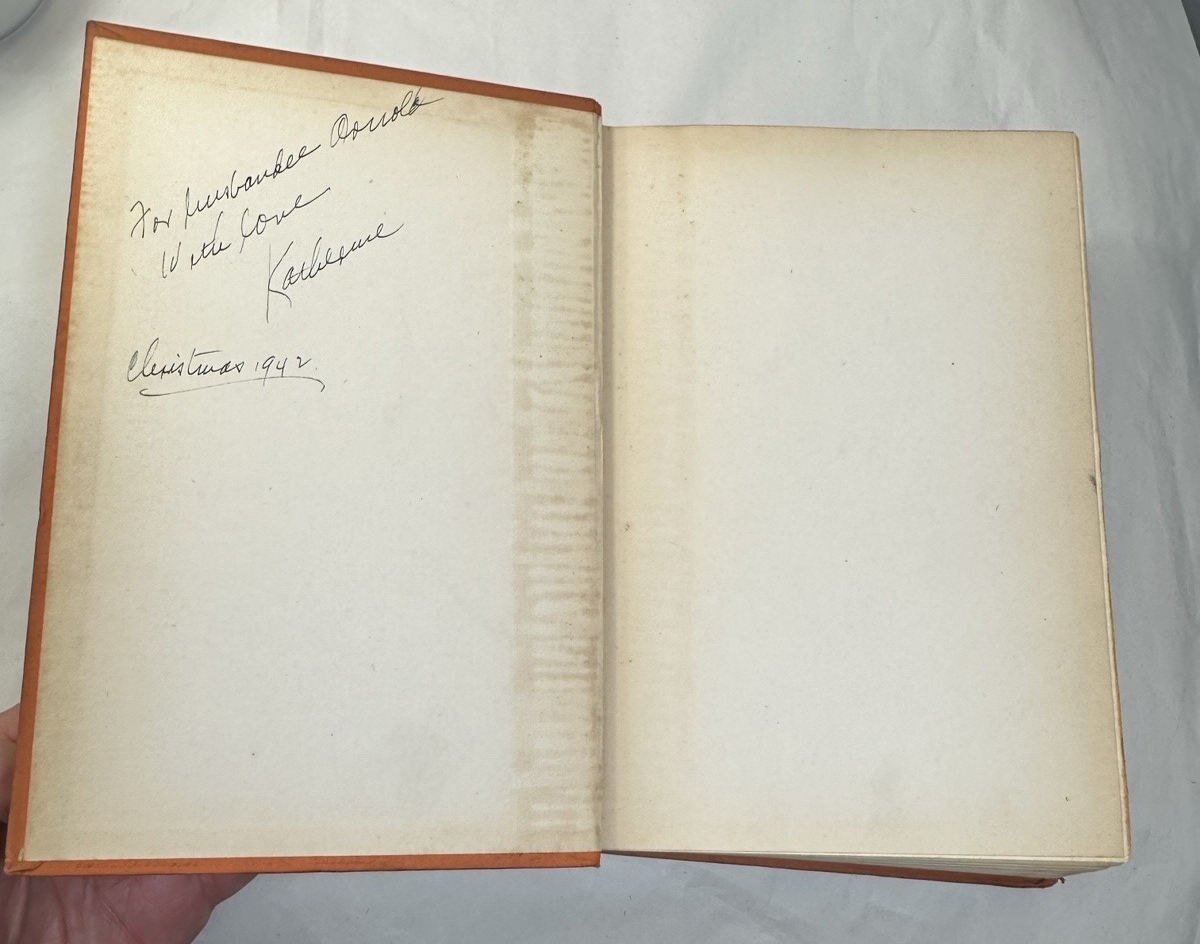 For husbandee Arnold
With love
Katherine
Christmas 1942.